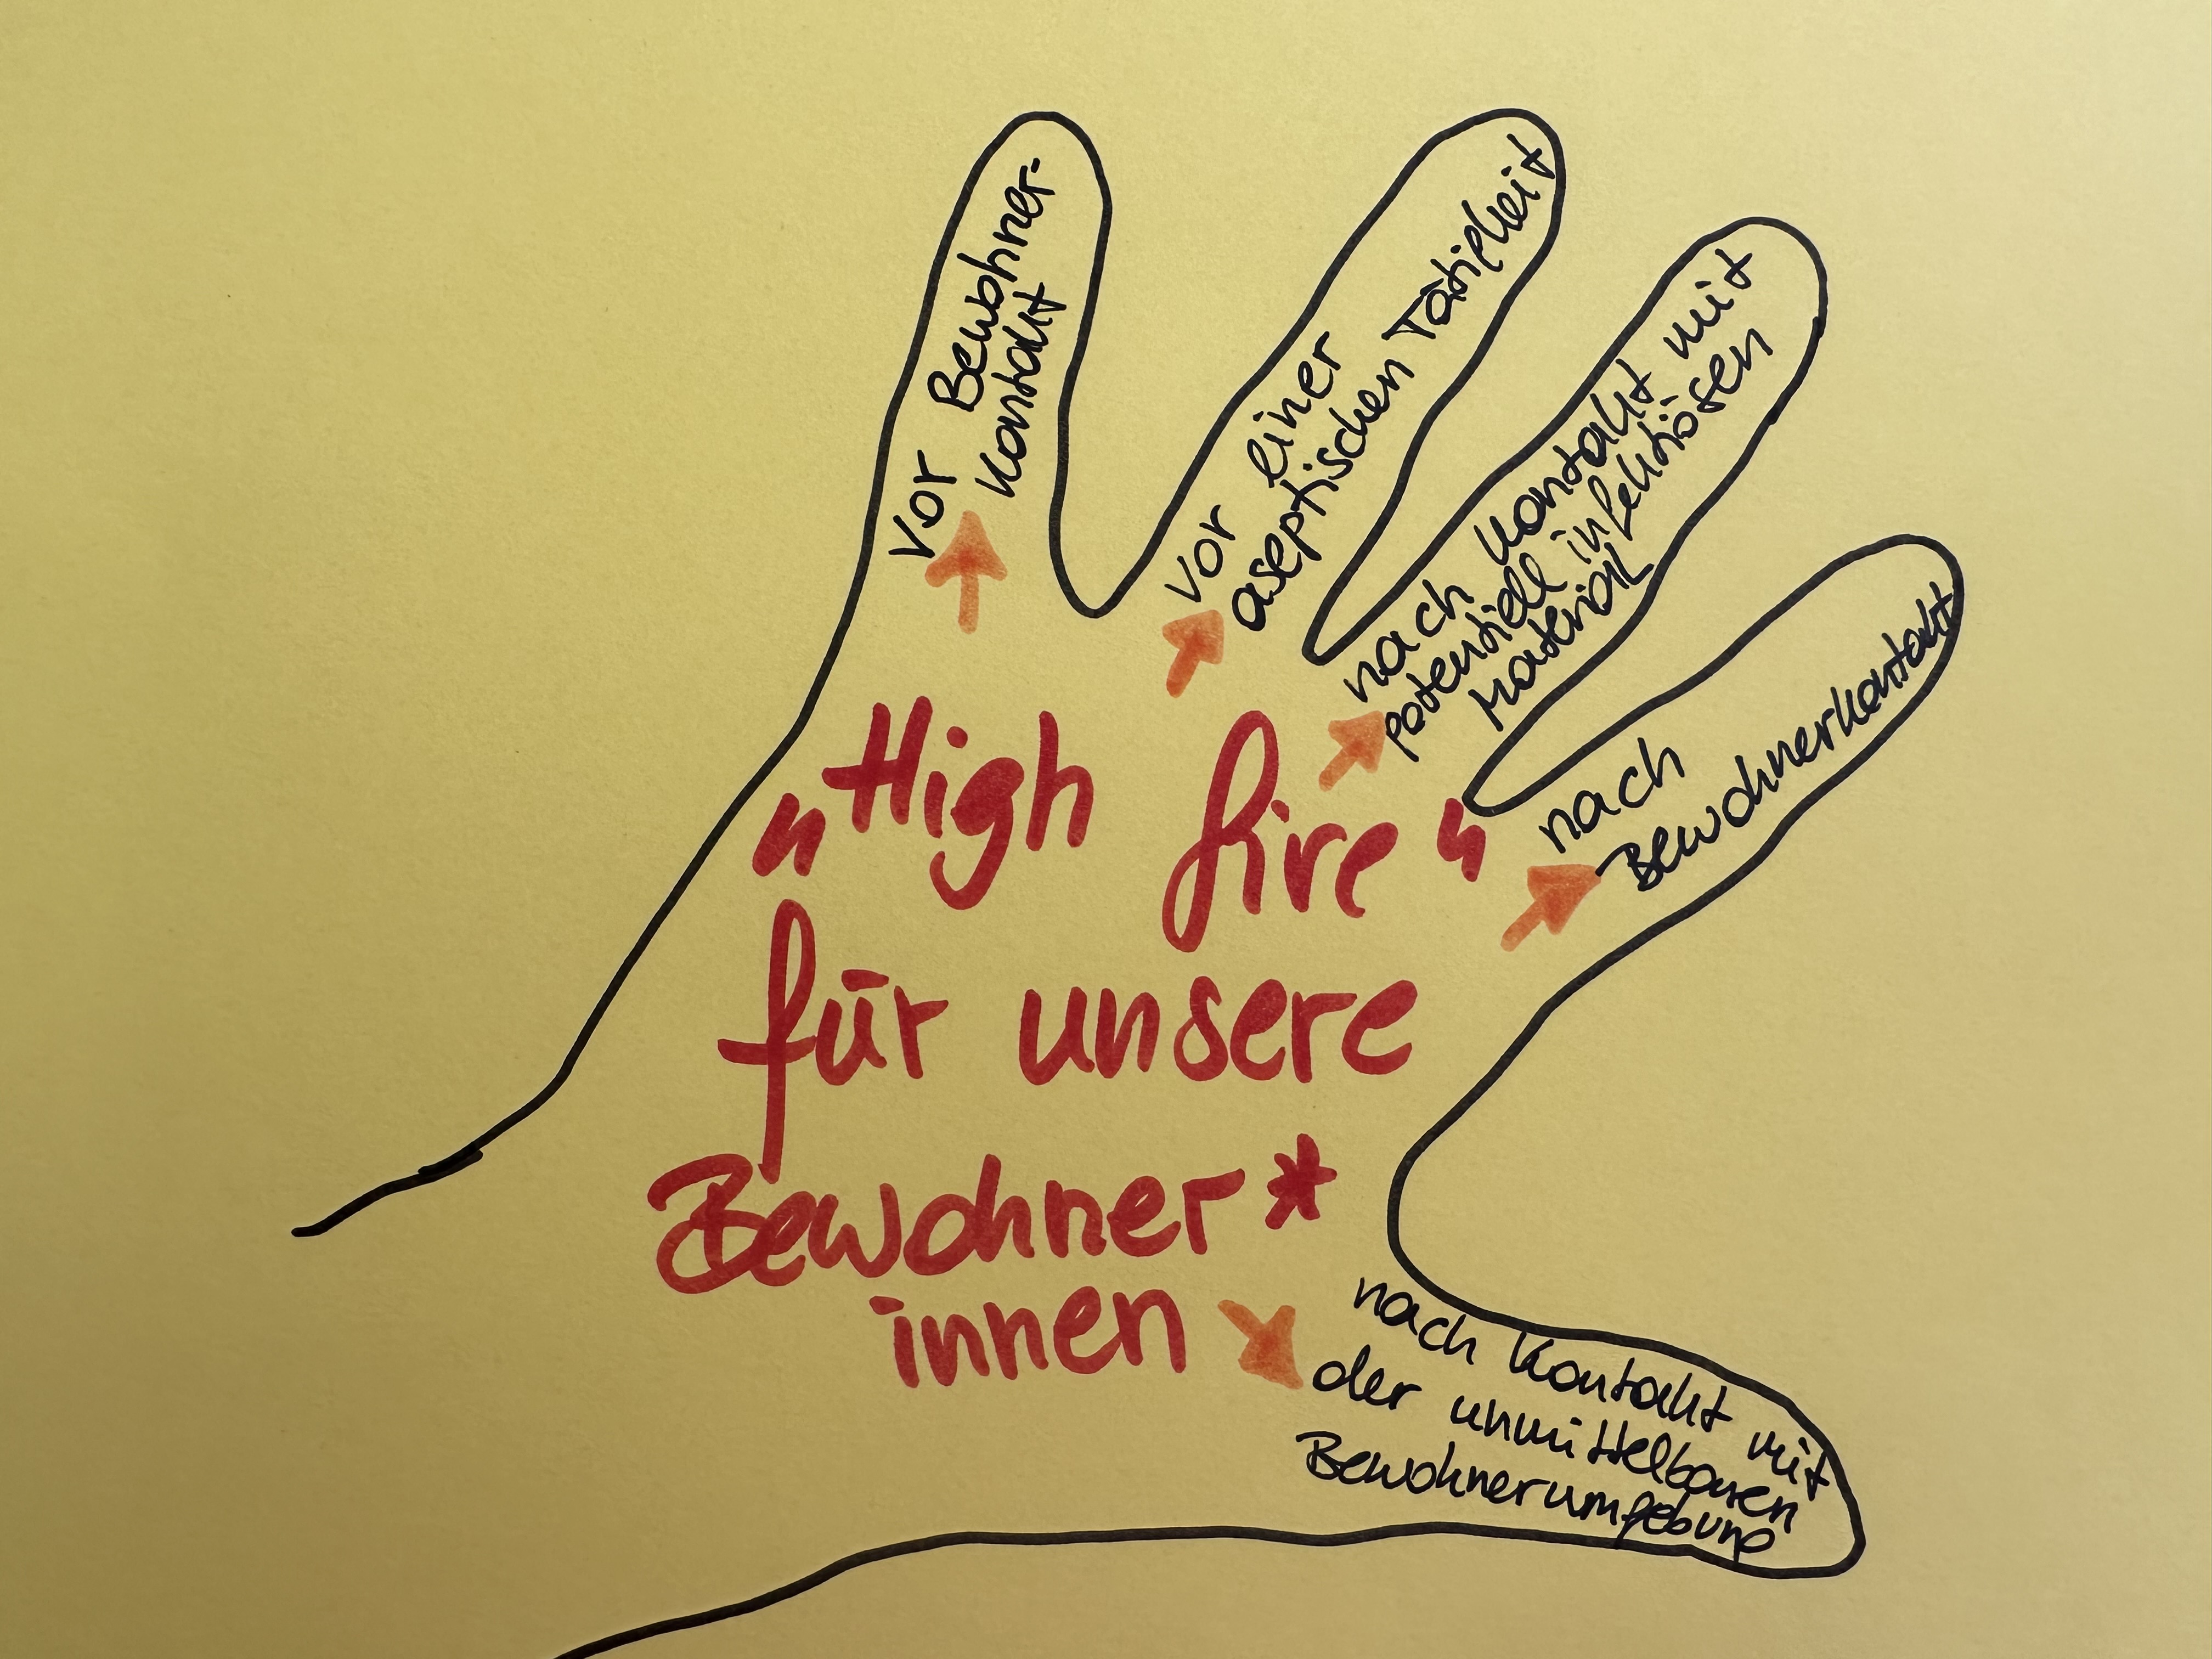 vor Bewohner-
kontakt
vor einer
aseptischen Tätigkeit
nach Kontakt mit
potentiell infektiösen
Material
nach
Bewohnerkontakt
„High five“
für unsere
Bewohner*
innen
nach Kontakt mit
der unmittelbaren
Bewohnerumgebung